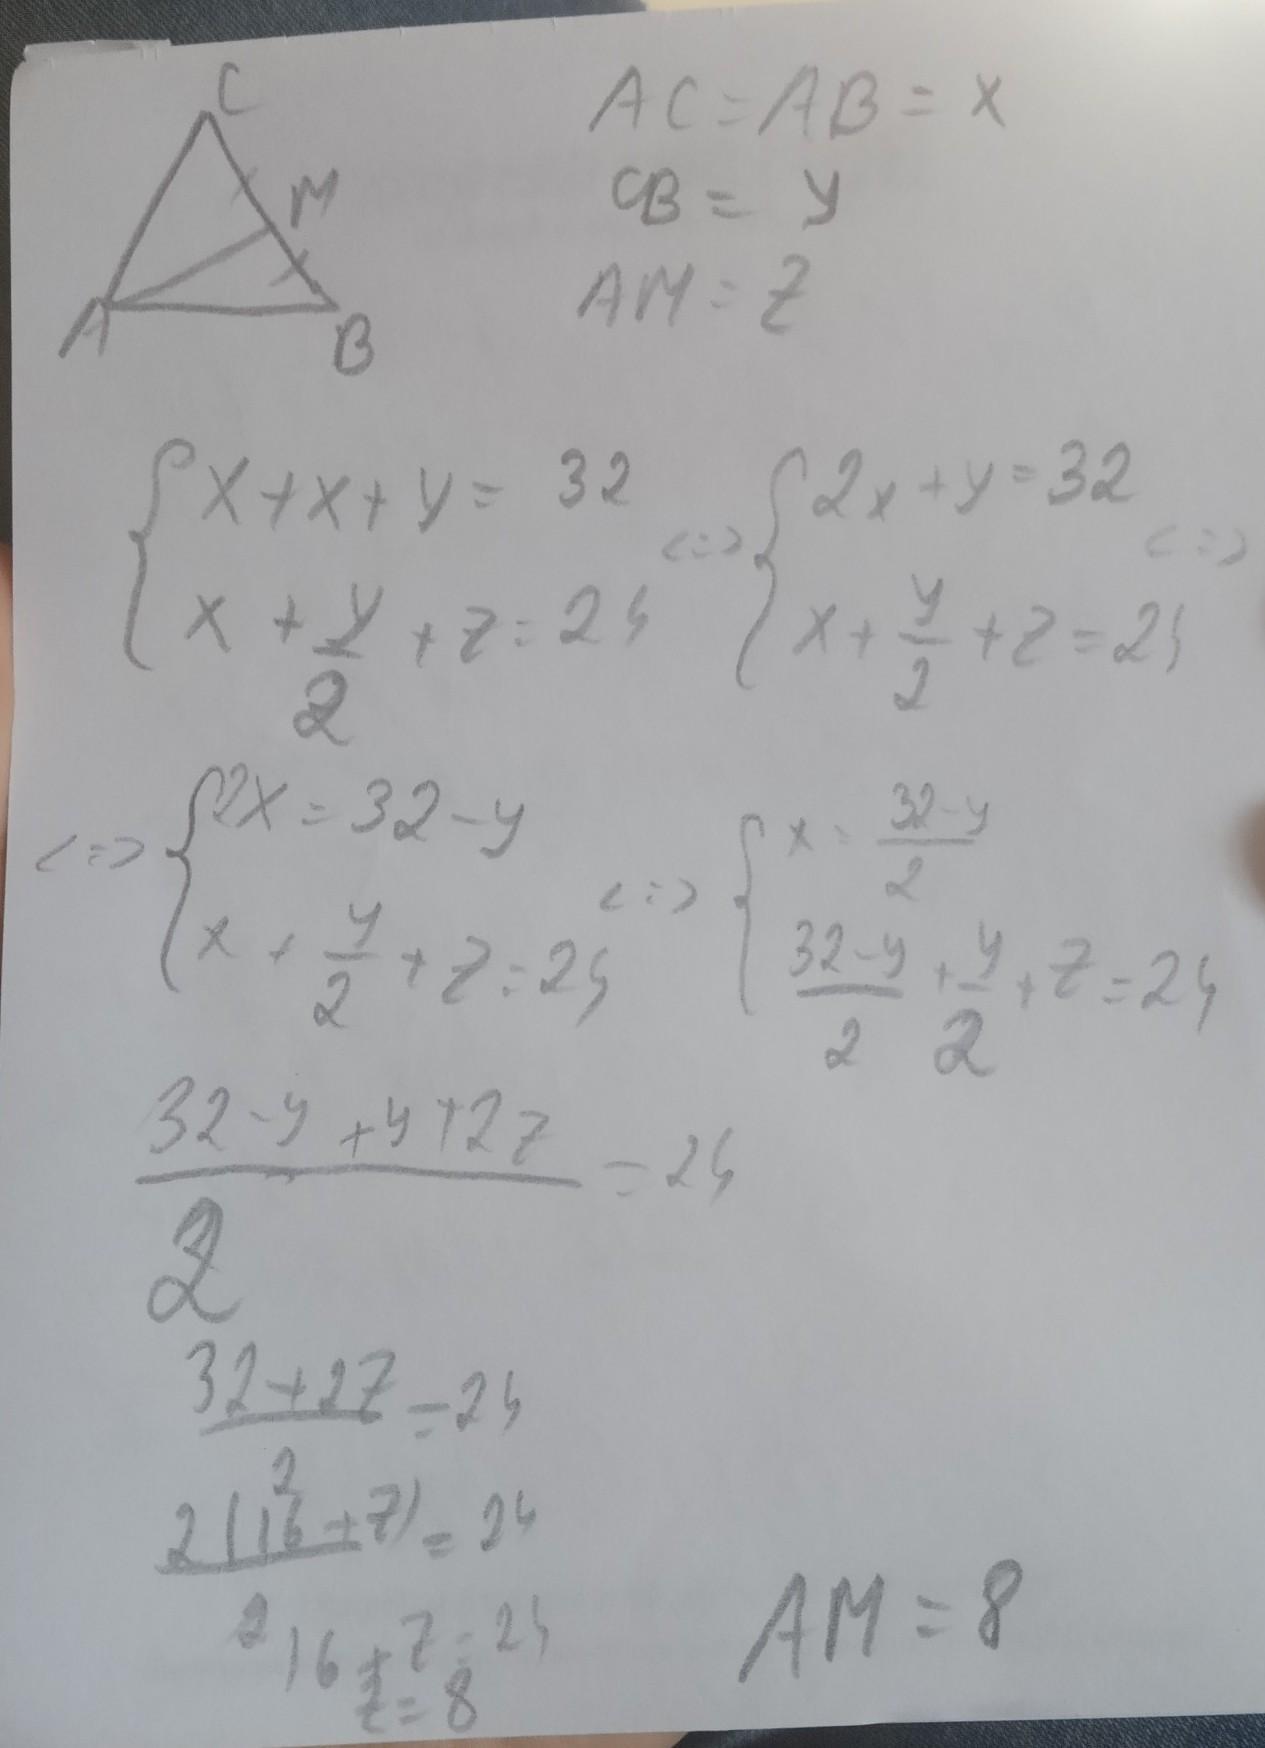 C
M
A
B
AC = AB = x
CB = y
AM = z
{ x + x + y = 32 <=> { 2x + y = 32 <=>
x + y/2 + z = 24 x + y/2 + z = 24
<=> { 2x = 32 - y <=> { x = (32 - y)/2
x + y/2 + z = 24 (32 - y)/2 + y/2 + z = 24
(32 - y + y + 2z)/2 = 24
(32 + 2z)/2 = 24
2(16 + z)/2 = 24
16 + z = 24
z = 8
AM = 8